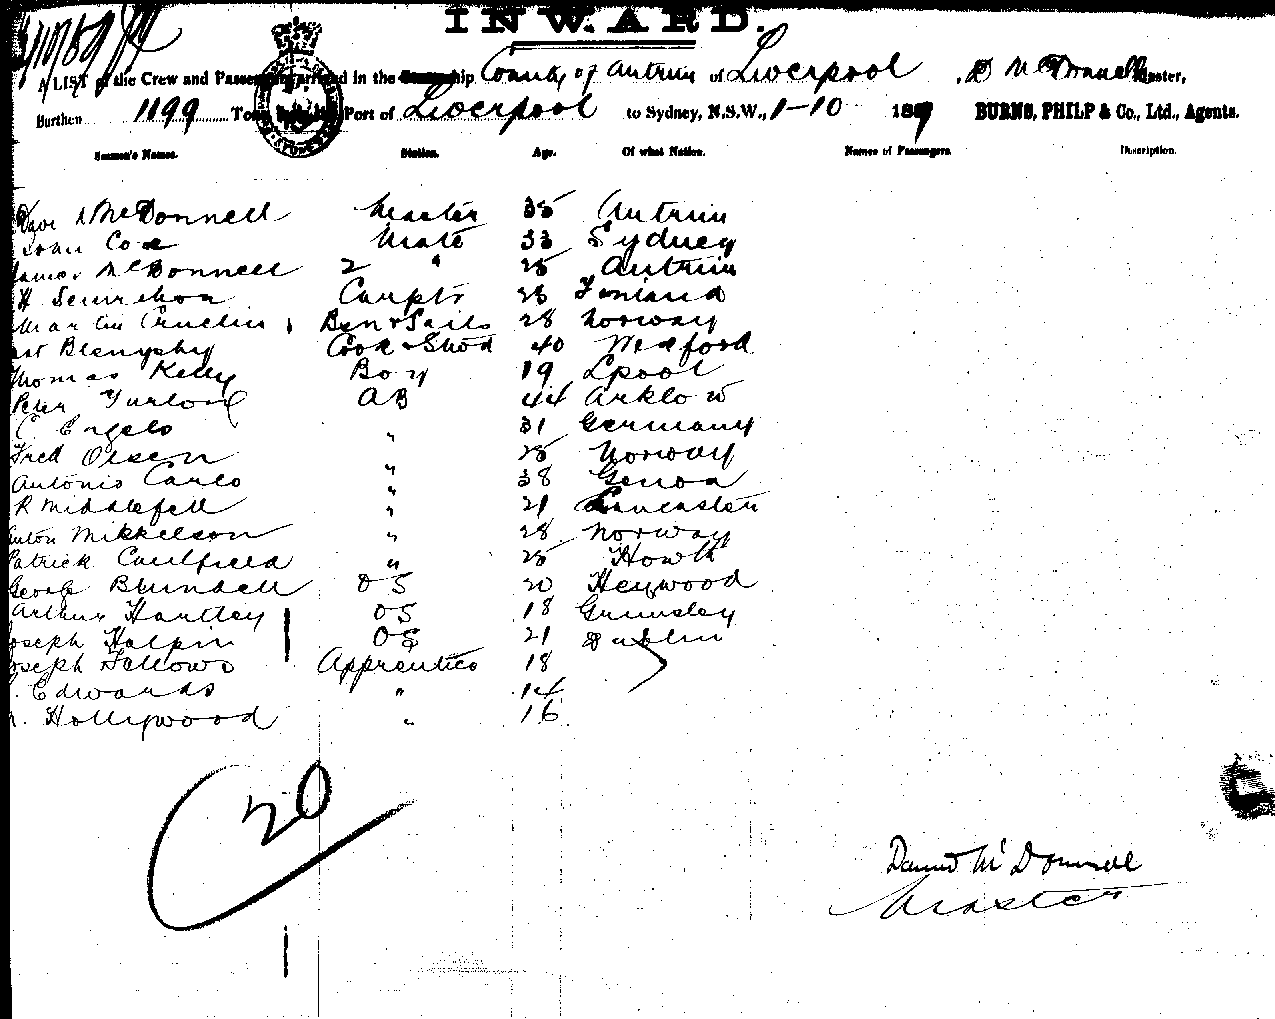 INWARD.
A LIST of the Crew and Passengers arrived in the ship County of Antrim of Liverpool D McDonnell Master,
Burthen 1199 Tons Port of Liverpool to Sydney, N.S.W., 1-10 1889 BURNS, PHILP & Co., Ltd., Agents.
Seamen's Names. Station. Age. Of what Nation. Names of Passengers. Description.
McDonnell Master 35 Antrim
John Coe Mate 33 Sydney
James McDonnell 2 " 25 Antrim
H Carptr 28 Finland
Martin Bsn & Sails 28 Norway
Cook & Stwd 40 Wexford
Thomas Kelly Boy 19 Lpool
Peter Furlong AB 44 Arklow
C Engelo " 31 Germany
Fred Olsen " 25 Norway
Antonio Carlo " 38 Genoa
R Middlefell " 21 Lancaster
Anton Mikkelson " 28 Norway
Patrick Caulfield " 25 Howth
George Blundell OS 20 Heywood
Arthur Hartley OS 18 Grimsley
Joseph Halpin OS 21 Dublin
Joseph Fellows Apprentice 18
Edwards " 14
Hollywood " 16
20
David McDonnell
Master